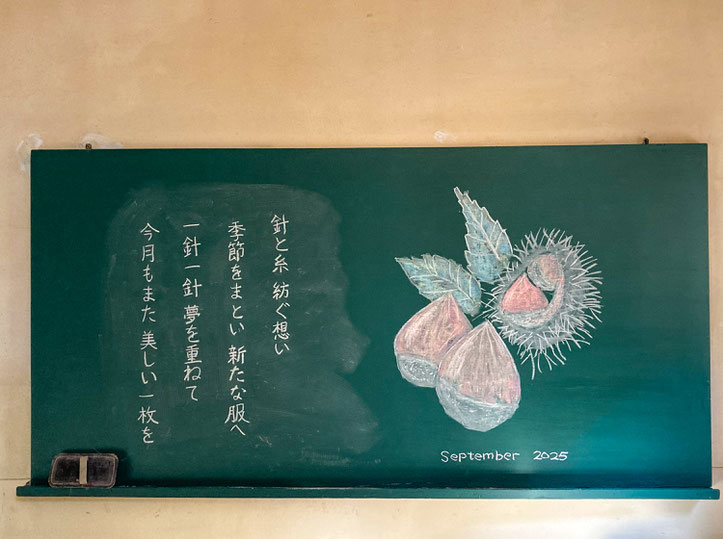 針と糸 紡ぐ想い
季節をまとい 新たな服へ
一針一針 夢を重ねて
今月もまた 美しい一枚を
September 2025